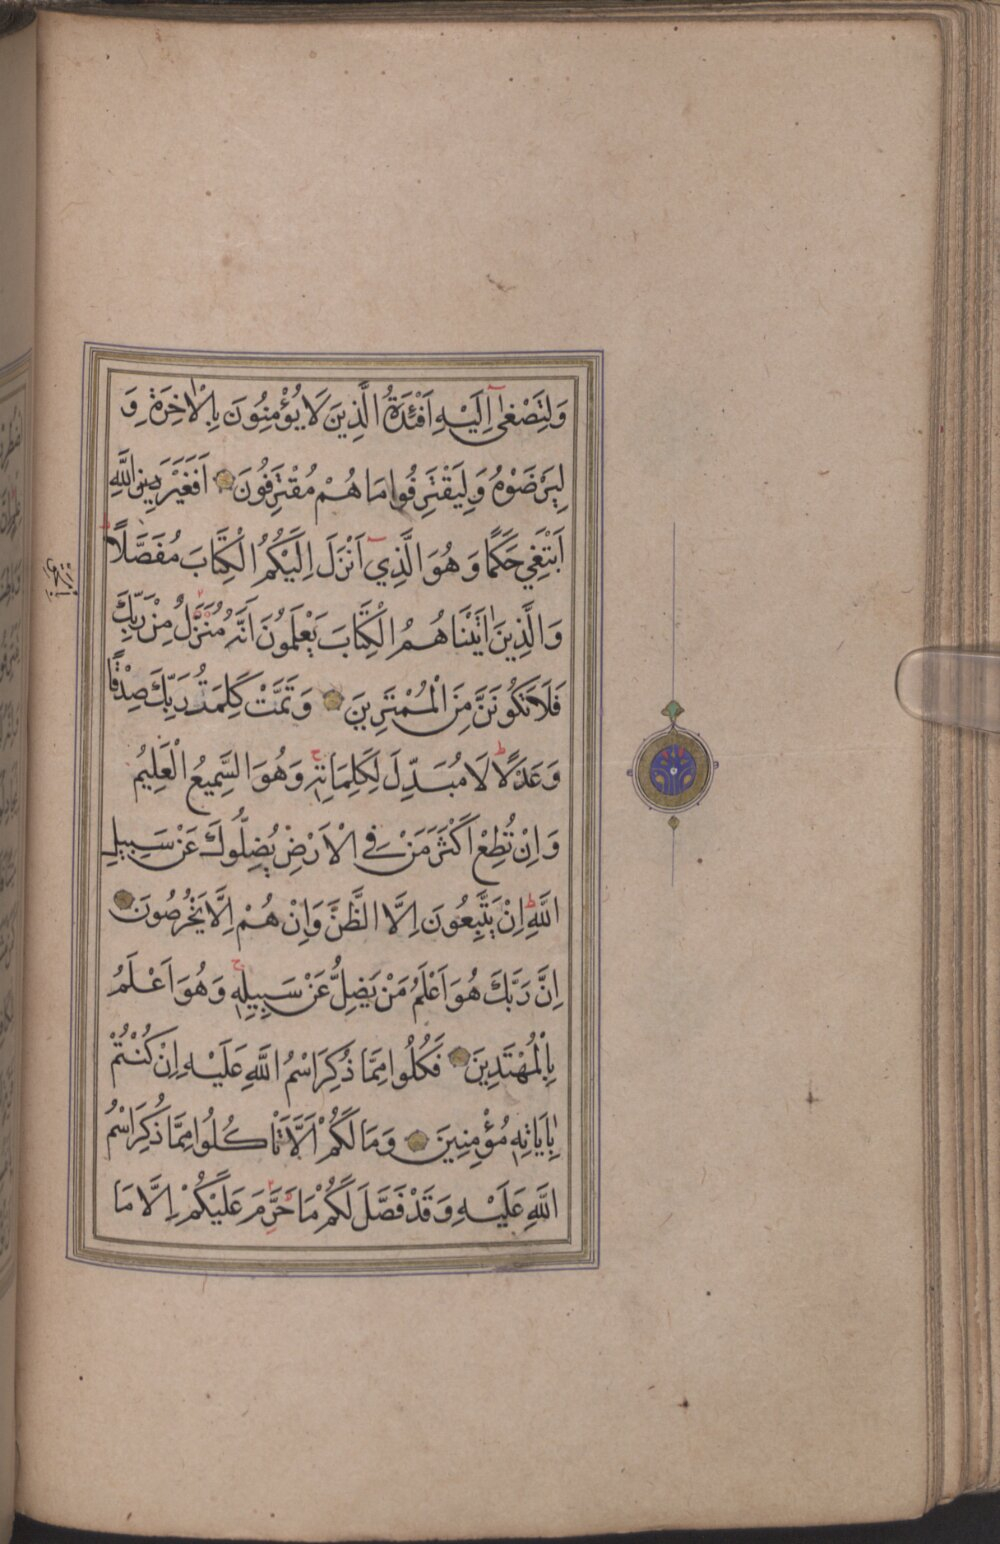 وَلِتَصْغٰٓى اِلَيْهِ اَفْـِٔدَةُ الَّذِينَ لَا يُؤْمِنُونَ بِالْاٰخِرَةِ وَ
لِيَرْضَوْهُ وَلِيَقْتَرِفُوا مَا هُمْ مُقْتَرِفُونَ اَفَغَيْرَ اللَّهِ
اَبْتَغِي حَكَمًا وَهُوَ الَّذِٓي اَنْزَلَ اِلَيْكُمُ الْكِتَابَ مُفَصَّلًا
وَالَّذِينَ اٰتَيْنَاهُمُ الْكِتَابَ يَعْلَمُونَ اَنَّهُ مُنَزَّلٌ مِنْ رَبِّكَ
فَلَا تَكُونَنَّ مِنَ الْمُمْتَرِينَ وَتَمَّتْ كَلِمَتُ رَبِّكَ صِدْقًا
وَعَدْلًا لَا مُبَدِّلَ لِكَلِمَاتِهِ وَهُوَ السَّمِيعُ الْعَلِيمُ
وَاِنْ تُطِعْ اَكْثَرَ مَنْ فِي الْاَرْضِ يُضِلُّوكَ عَنْ سَبِيلِ
اللَّهِ اِنْ يَتَّبِعُونَ اِلَّا الظَّنَّ وَاِنْ هُمْ اِلَّا يَخْرُصُونَ
اِنَّ رَبَّكَ هُوَ اَعْلَمُ مَنْ يَضِلُّ عَنْ سَبِيلِهِ وَهُوَ اَعْلَمُ
بِالْمُهْتَدِينَ فَكُلُوا مِمَّا ذُكِرَ اسْمُ اللَّهِ عَلَيْهِ اِنْ كُنْتُمْ
بِاٰيَاتِهِ مُؤْمِنِينَ وَمَا لَكُمْ اَلَّا تَاْكُلُوا مِمَّا ذُكِرَ اسْمُ
اللَّهِ عَلَيْهِ وَقَدْ فَصَّلَ لَكُمْ مَا حَرَّمَ عَلَيْكُمْ اِلَّا مَا